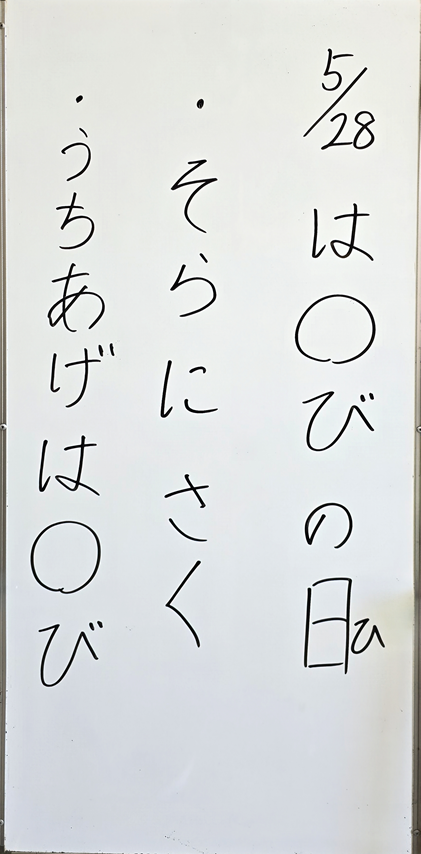 5/28は〇びの日ひ
・そらにさく
・うちあげは〇び